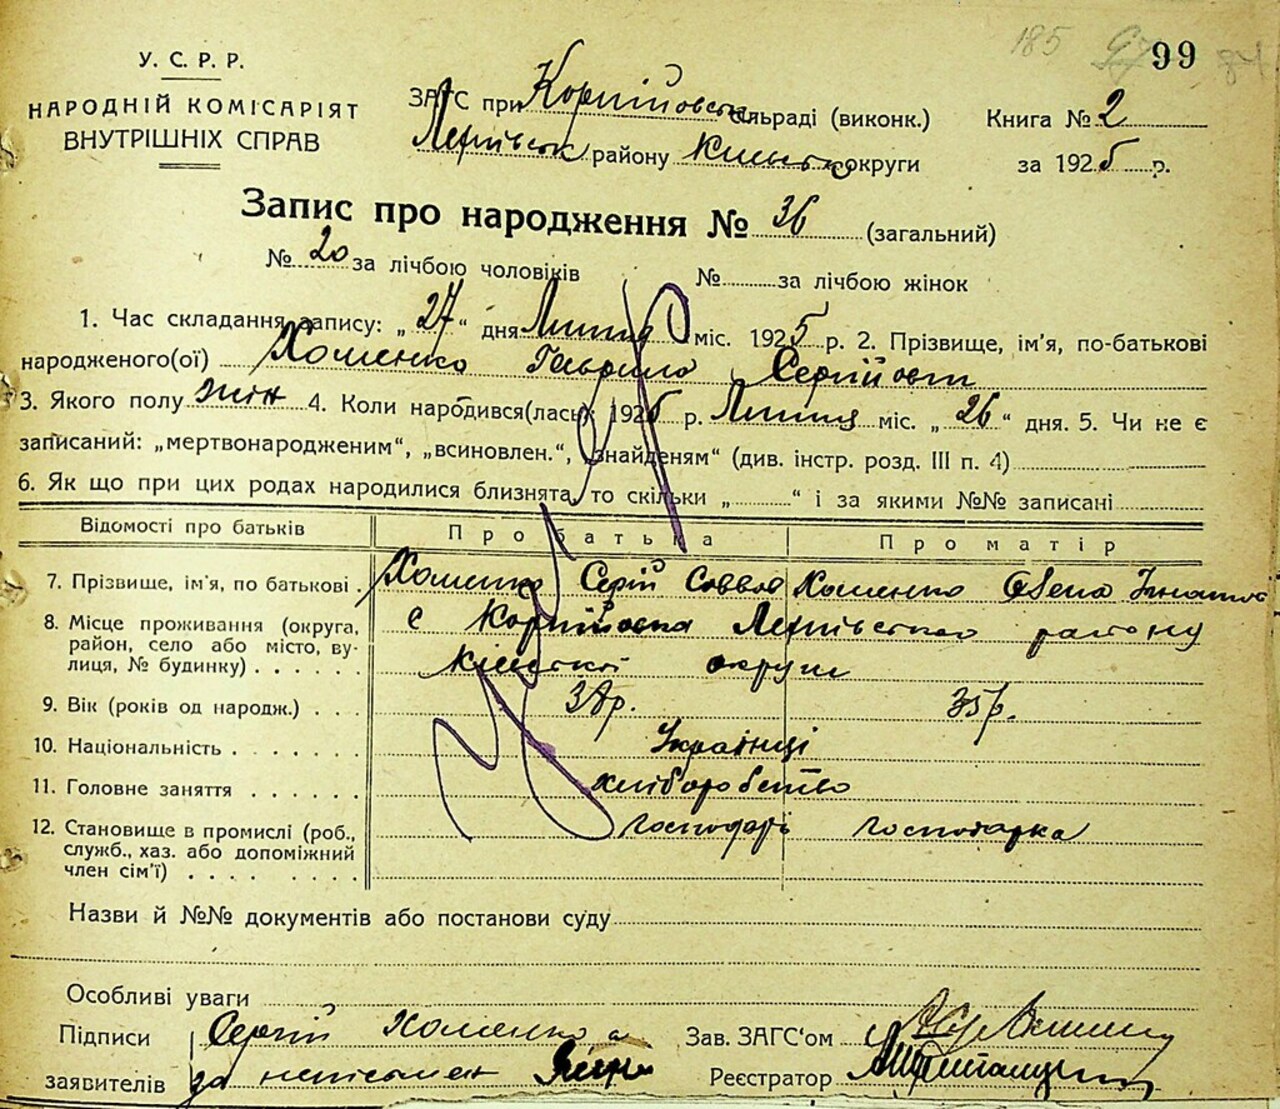 185 99 84
У. С. Р. Р.
НАРОДНІЙ КОМІСАРІЯТ
ВНУТРІШНІХ СПРАВ
ЗАГС при сільраді (виконк.) Книга № 2
району округи за 1925 р.
Запис про народження № 36 (загальний)
№ 20 за лічбою чоловіків № за лічбою жінок
1. Час складання запису: „ 27 “ дня Липня міс. 1925 р. 2. Прізвище, ім'я, по-батькові
народженого(ої) Хоменко Гаврило
3. Якого полу 4. Коли народився(лась) 1925 р. Липня міс. „ 26 “ дня. 5. Чи не є
записаний: „мертвонародженим“, „всиновлен.“, „знайденям“ (див. інстр. розд. III п. 4)
6. Як що при цих родах народилися близнята, то скільки „ “ і за якими №№ записані
Відомості про батьків Про батька Про матір
7. Прізвище, ім'я, по батькові . Хоменко Сергій Хоменко
8. Місце проживання (округа, с району
район, село або місто, ву-
лиця, № будинку) . . . . . округи
9. Вік (років од народж.) . . . 35р.
10. Національність . . . . . . Українці
11. Головне заняття . . . . . . хліборобство
12. Становище в промислі (роб., господарь господарка
служб., хаз. або допоміжний
член сім'ї) . . . . . . .
Назви й №№ документів або постанови суду
Особливі уваги
Підписи Сергій Хоменко а Зав. ЗАГС'ом
заявителів за Реєстратор